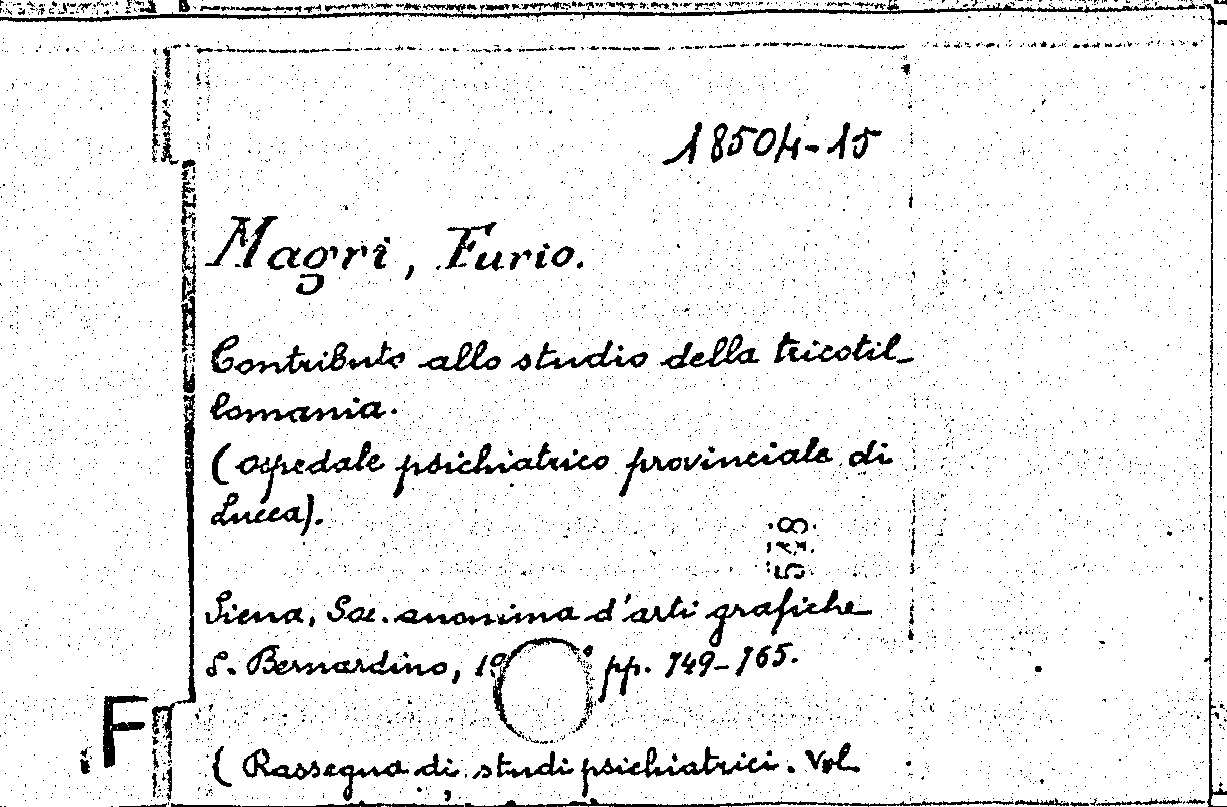 18504-15
Magri, Furio.
Contributo allo studio della tricotil-
lomania.
(Ospedale psichiatrico provinciale di
Lucca).
548
Siena, Soc. anonima d'arti grafiche
S. Bernardino, 19 pp. 749-765.
F
( Rassegna di studi psichiatrici. Vol.